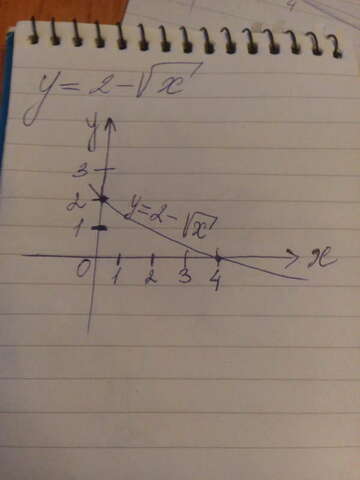 y = 2 - √x
y
3
2
y = 2 - √x
1
0 1 2 3 4 x